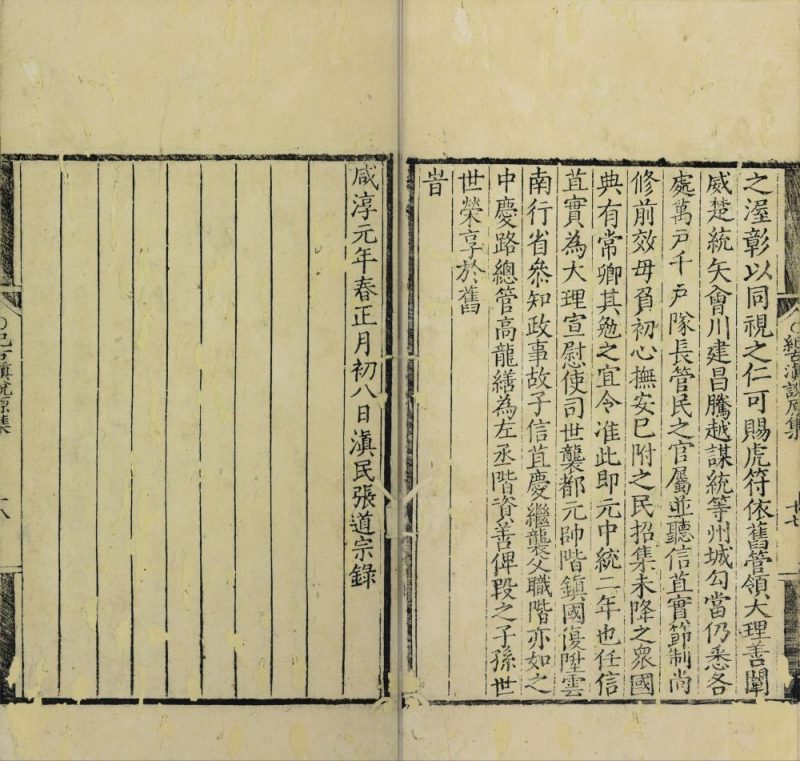 之渥彰以同視之仁可賜虎符依舊管領大理善闡
威楚統矢會川建昌騰越謀統等州城勾當仍悉各
處萬戶千戶隊長管民之官屬並聽信苴實節制尚
修前效毋負初心撫安已附之民招集未降之眾國
典有常卿其勉之宜令准此即元中統二年也任信
苴實為大理宣慰使司世襲都元帥階鎮國復陞雲
南行省叅知政事故子信苴慶繼襲父職階亦如之
中慶路總管高龍繕為左丞階資善俾段之子孫世
世榮享於舊
旹
咸淳元年春正月初八日滇民張道宗錄
紀古滇說原集